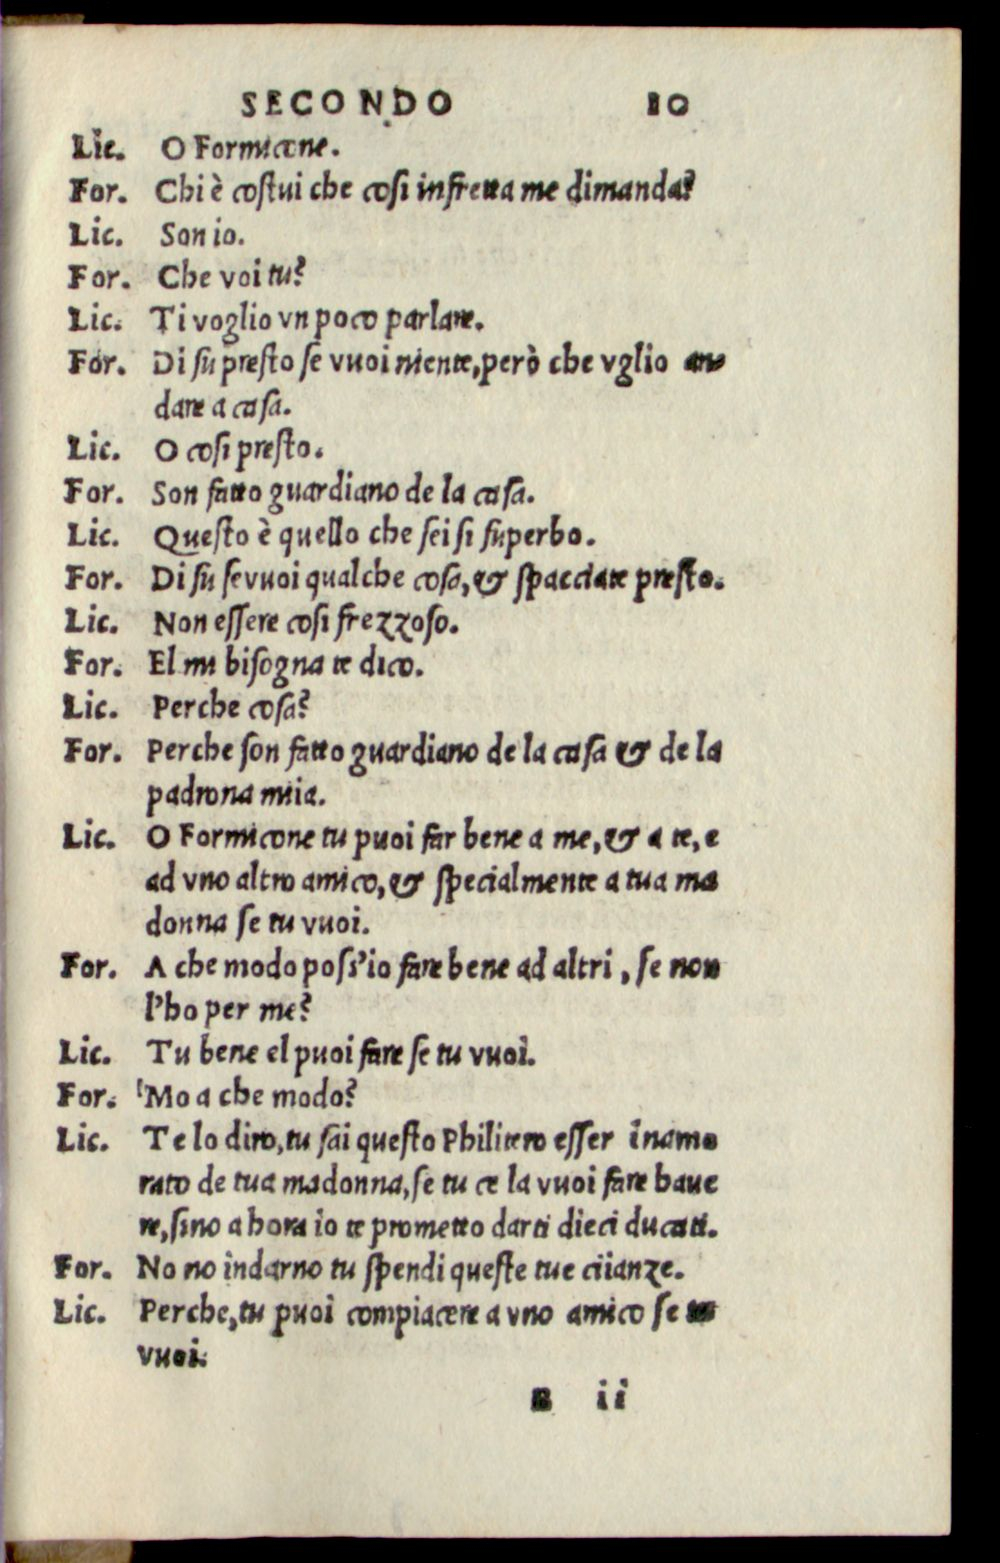 SECONDO 10
Lic. O Formicone.
For. Chi è costui che cosi infretta me dimanda?
Lic. Son io.
For. Che voi tu?
Lic. Ti voglio vn poco parlare.
For. Di su presto se vuoi niente, però che vglio an
dare a casa.
Lic. O cosi presto.
For. Son fatto guardiano de la casa.
Lic. Questo è quello che sei si superbo.
For. Di su se vuoi qualche cosa, & spacciate presto.
Lic. Non essere cosi frezzoso.
For. El mi bisogna te dico.
Lic. Perche cosa?
For. Perche son fatto guardiano de la casa & de la
padrona mia.
Lic. O Formicone tu puoi far bene a me, & a te, e
ad vno altro amico, & specialmente a tua ma
donna se tu vuoi.
For. A che modo poss'io fare bene ad altri, se non
l'ho per me?
Lic. Tu bene el puoi fare se tu vuoi.
For. Mo a che modo?
Lic. Te lo diro, tu sai questo Philitero esser inamo
rato de tua madonna, se tu ce la vuoi fare haue
re, sino a hora io te prometto darti dieci ducati.
For. No no indarno tu spendi queste tue ciianze.
Lic. Perche, tu puoi compiacere a vno amico se tu
vuoi.
B ii